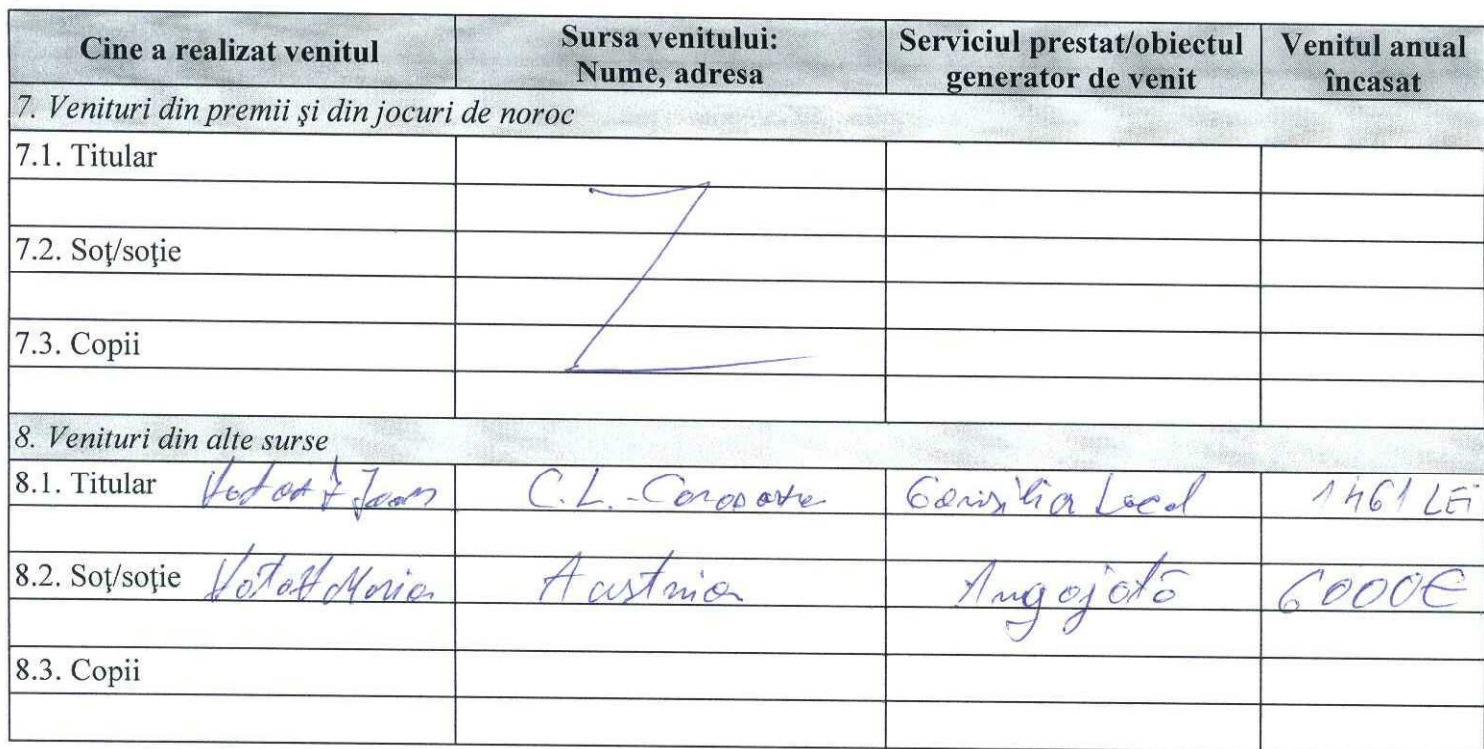 Cine a realizat venitul Sursa venitului: Nume, adresa Serviciul prestat/obiectul generator de venit Venitul anual încasat
7. Venituri din premii şi din jocuri de noroc
7.1. Titular
7.2. Soţ/soţie
7.3. Copii
8. Venituri din alte surse
8.1. Titular C.L. Local 1461 LEi
8.2. Soţ/soţie Maria Austria Angajată 6000€
8.3. Copii